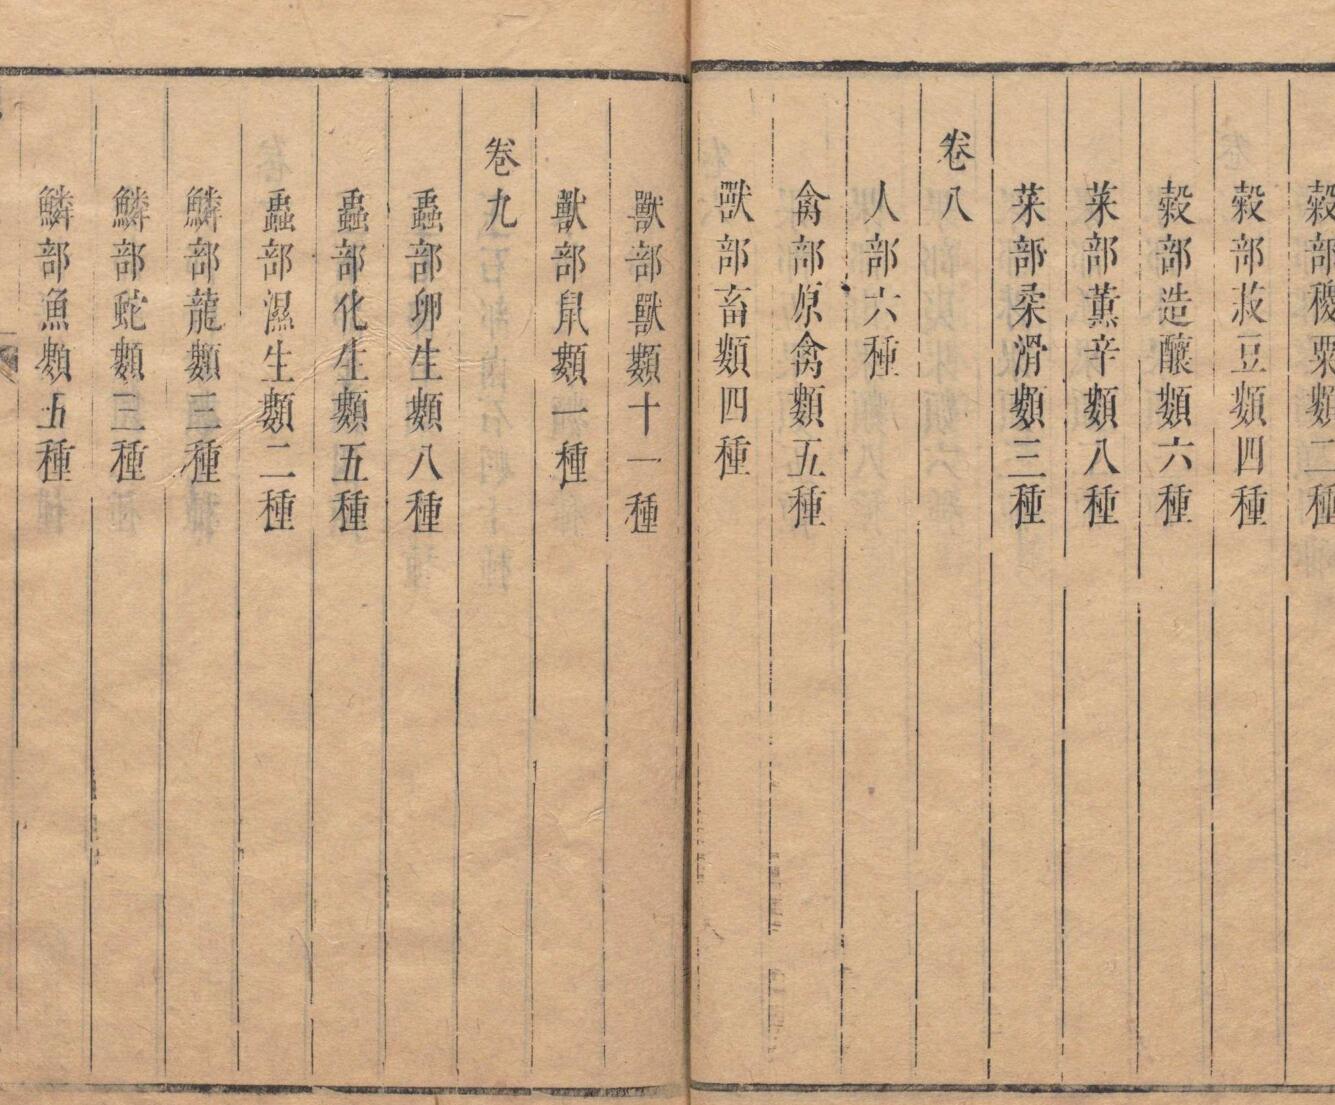 穀部稷粟類二種
穀部菽豆類四種
穀部造釀類六種
菜部薰辛類八種
菜部柔滑類三種
卷八
人部六種
禽部原禽類五種
獸部畜類四種
獸部獸類十一種
獸部鼠類一種
卷九
蟲部卵生類八種
蟲部化生類五種
蟲部濕生類二種
鱗部龍類三種
鱗部蛇類三種
鱗部魚類五種